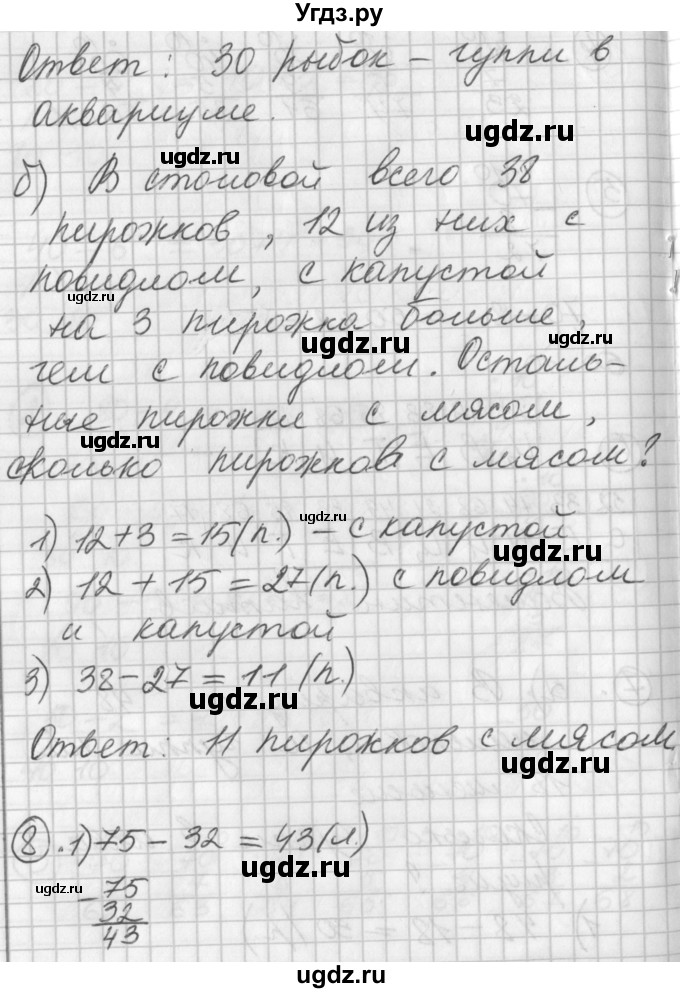 Угдз.ру
Ответ: 30 рыбок – гуппи в
аквариуме.
ugdz.ru
ugdz.ru
б) В столовой всего 38
пирожков, 12 из них с
ugdz.ru
повидлом, с капустой
ugdz.ru
на 3 пирожка больше,
ugdz.ru
чем с повидлом. Осталь-
ные пирожки с мясом,
ugdz.ru
ugdz.ru
сколько пирожков с мясом?
ugdz.ru
1) 12+3=15(п.) – с капустой
ugdz.ru
2) 12+15=27(п.) с повидлом
ugdz.ru
и капустой
3) 38-27=11(п.)
ugdz.ru
Ответ: 11 пирожков с мясом
ugdz.ru
ugdz.ru
8. 1) 75-32=43(л.)
ugdz.ru
ugdz.ru
-75
32
43
ugdz.ru
ugdz.ru